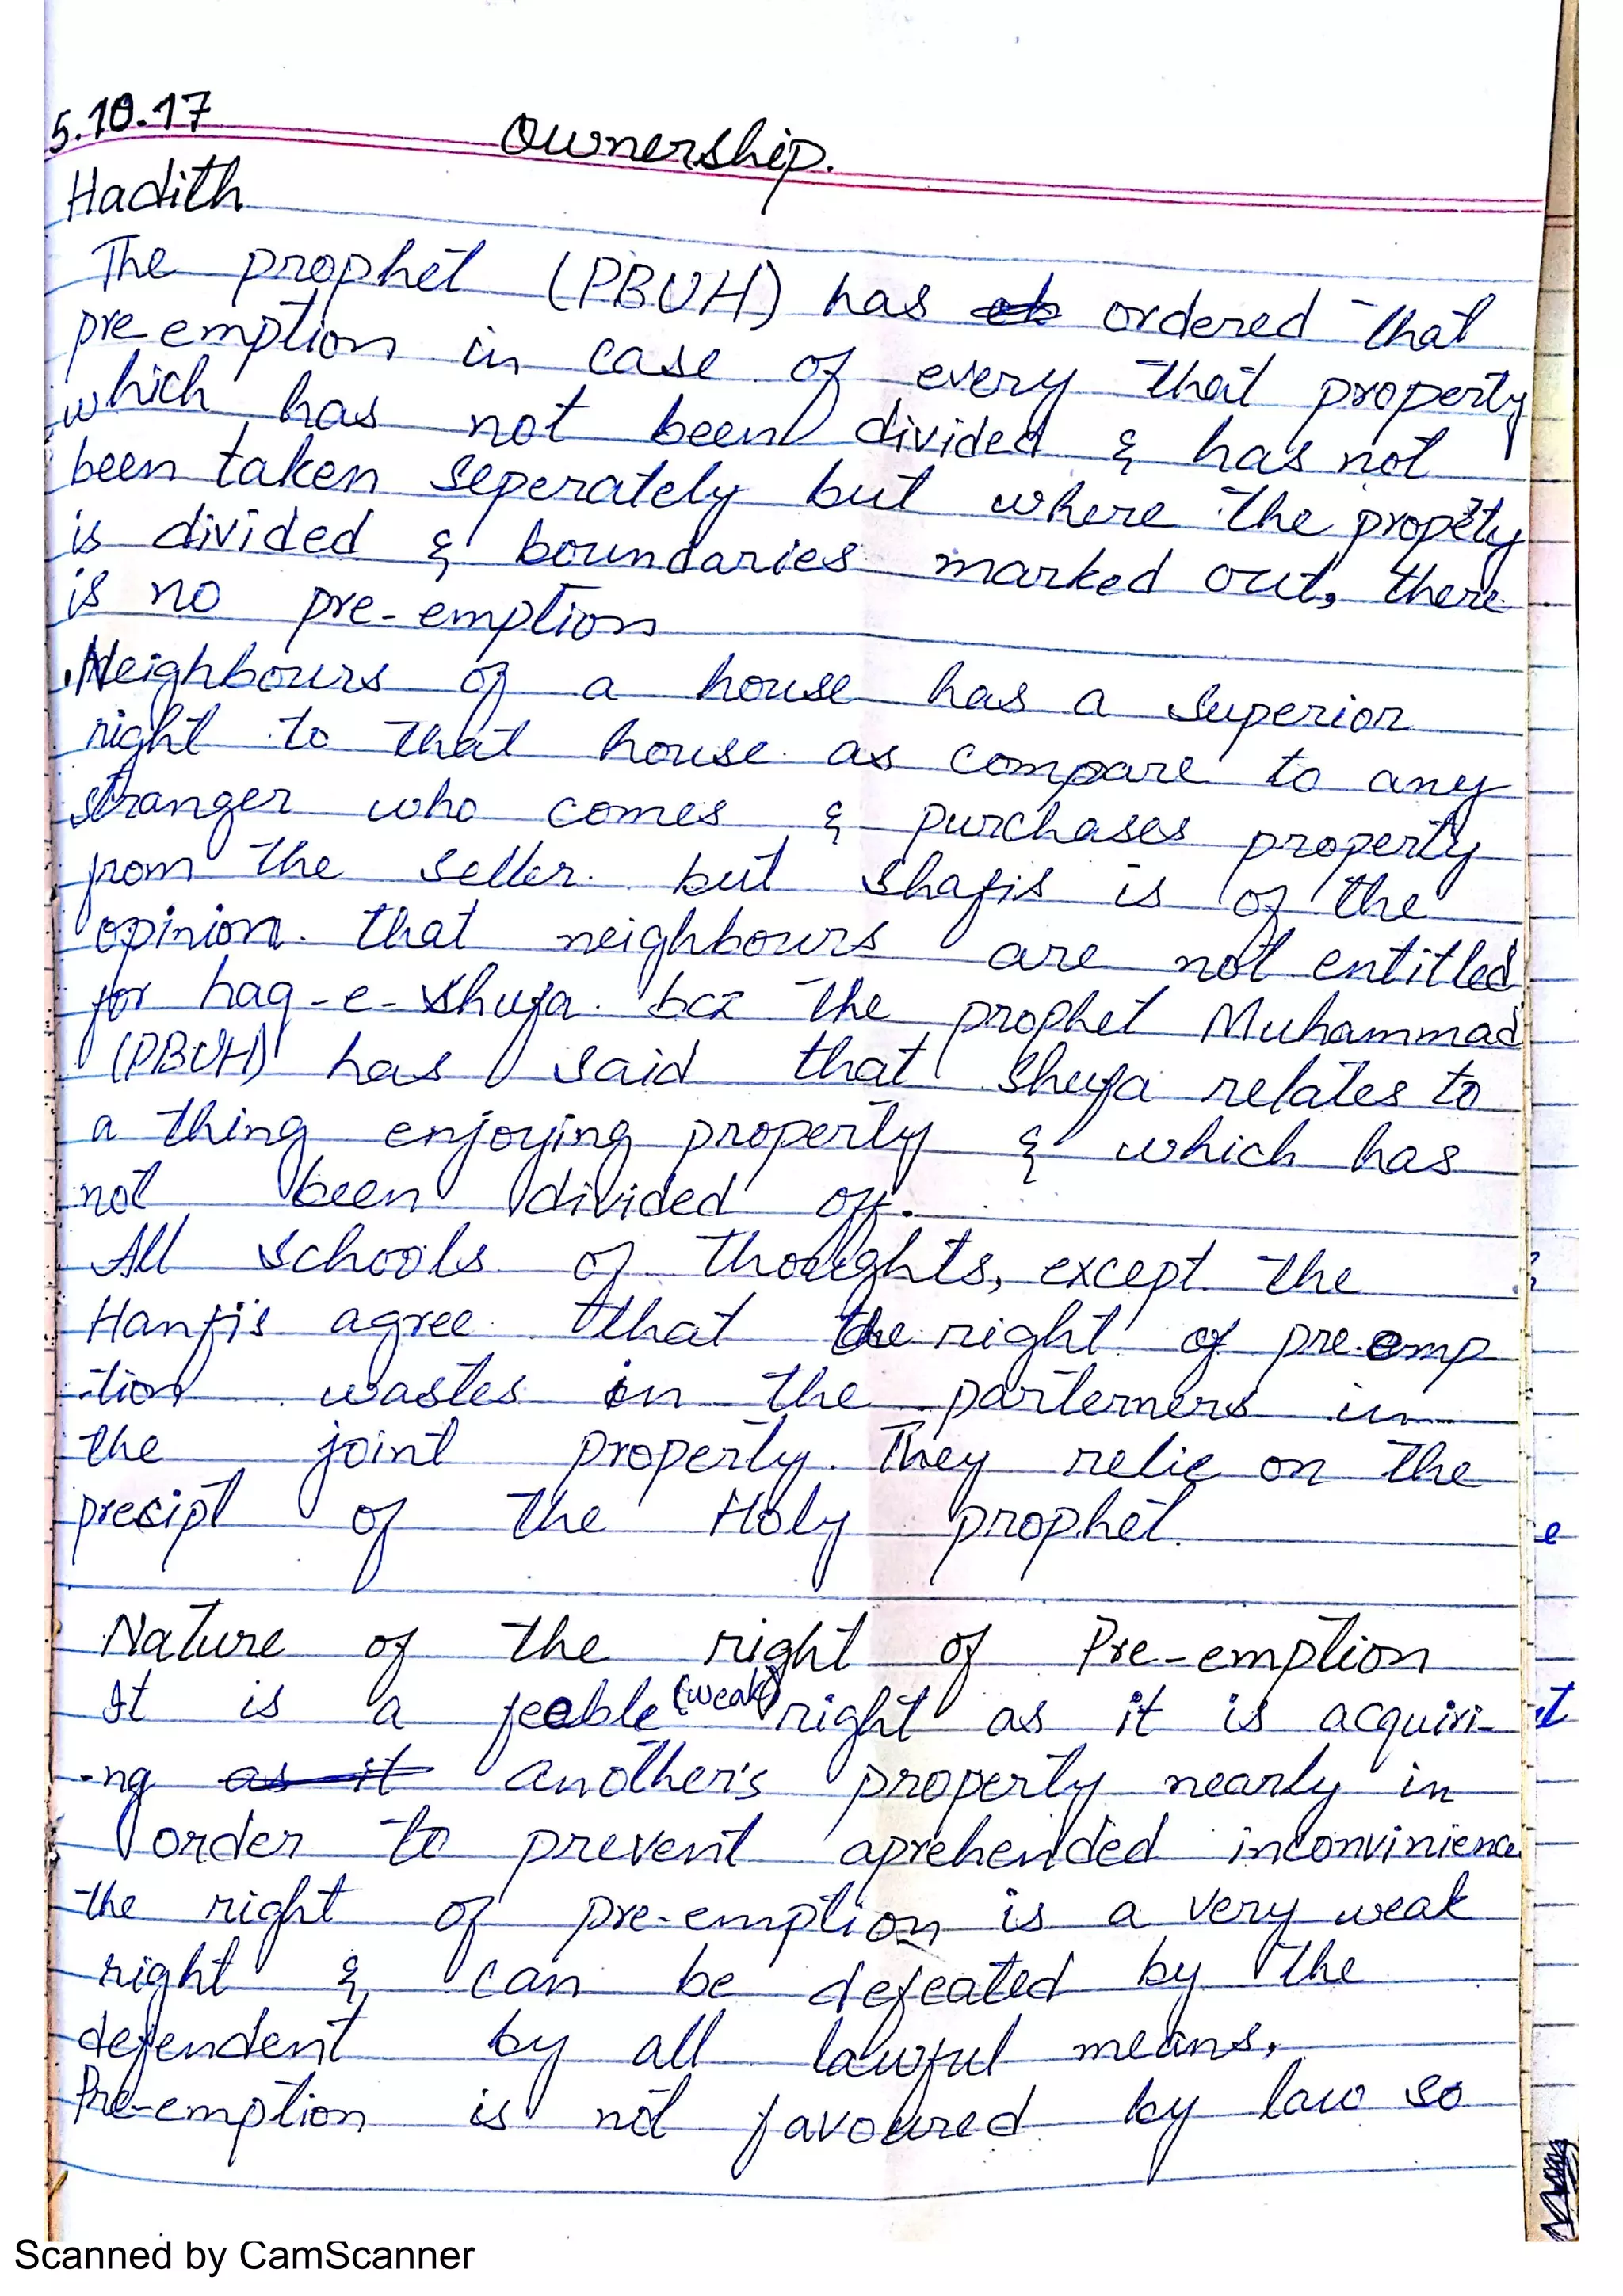 5.10.17
Ownership.
Hadith
The prophet (PBUH) has ordered that
pre emption in case of every that property
which has not been divided & has not
been taken seperately but where the propety
is divided & boundaries marked out, there
is no pre-emption
.Neighbours of a house has a superior
right to that house as compare to any
stranger who comes & purchases property
from the seller. but Shafis is of the
opinion. that neighbours are not entitled
for haq-e-shufa. bcz the prophet Muhammad
(PBUH) has said that shufa relates to
a thing enjoying property & which has
not been divided off.
All schools of thoughts, except the
Hanfi's agree that the right of pre-emp
-tion wastes in the parterners in
the joint property. They relie on the
precipt of the Holy prophet.
Nature of the right of Pre-emption
It is a feeble (weak) right as it is acquiri-
-ng as it another's property nearly in
order to prevent aprehended inconvinience
the right of pre-emption is a very weak
right & can be defeated by the
defendent by all lawful means.
Pre-emption is not favoured by law so
Scanned by CamScanner